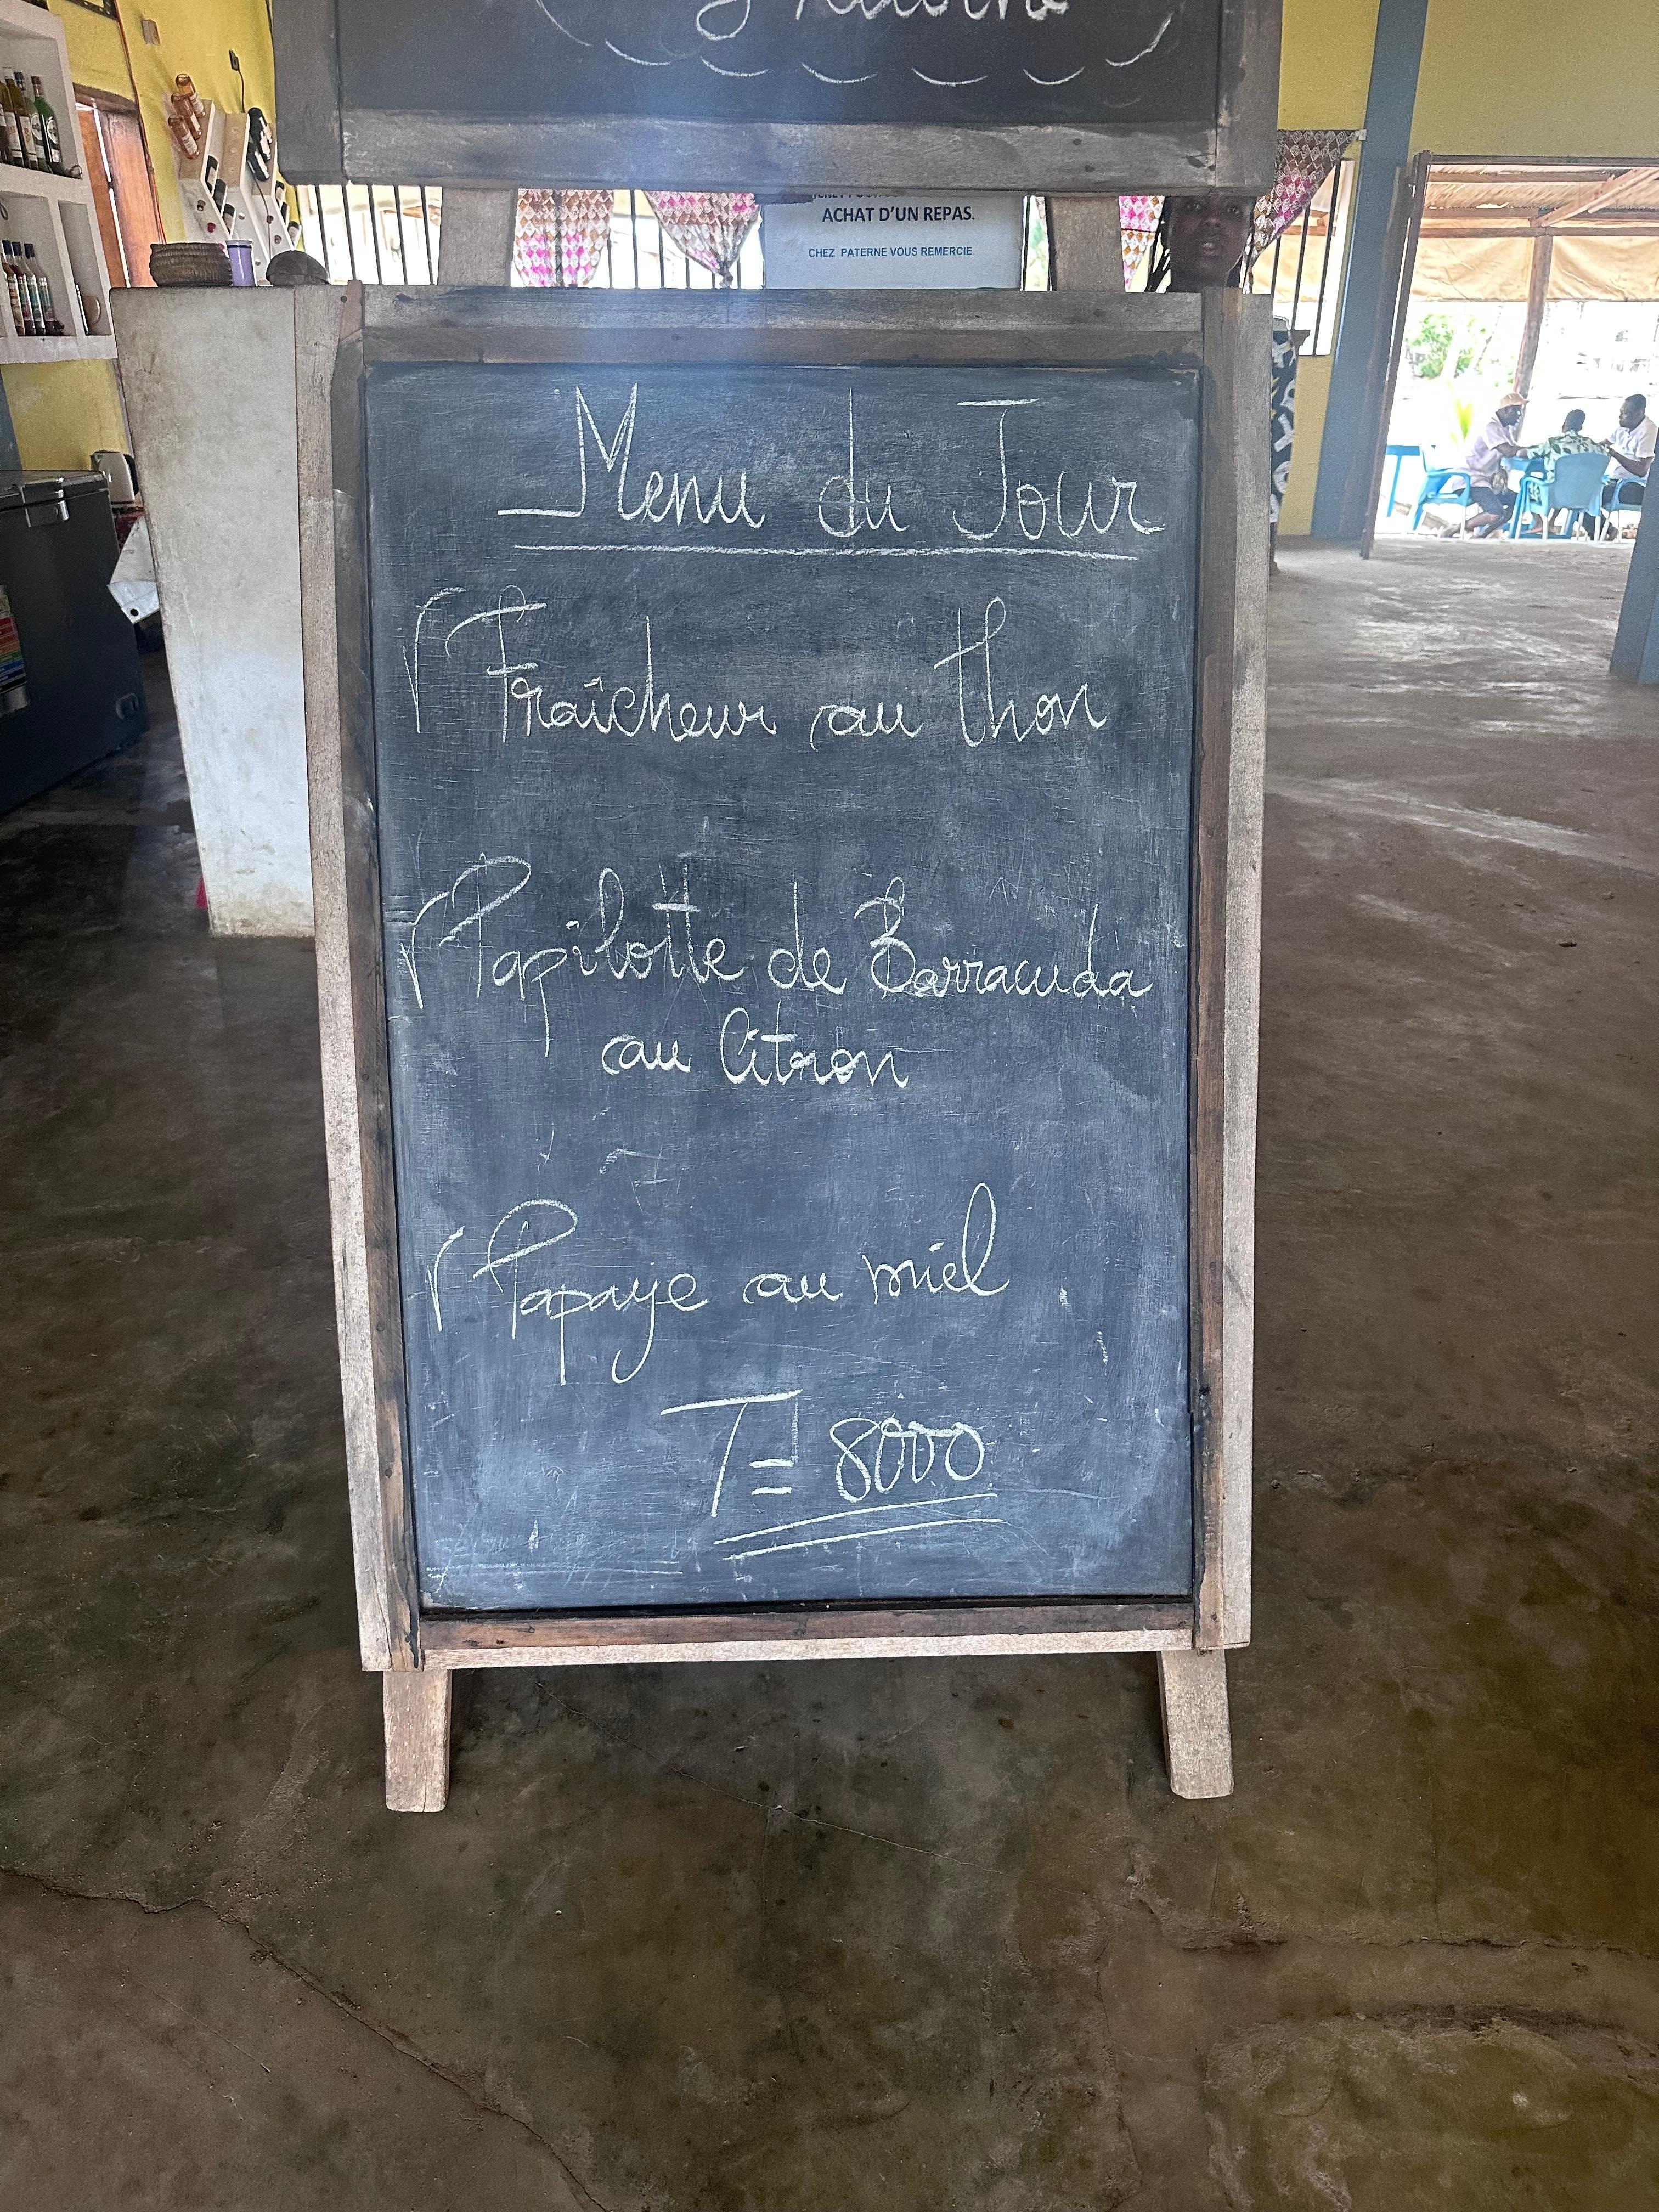 ACHAT D'UN REPAS.
CHEZ PATERNE VOUS REMERCIE.
Menu du Jour
Fraîcheur au thon
Papilotte de Barracuda
au Citron
Papaye au miel
T= 8000